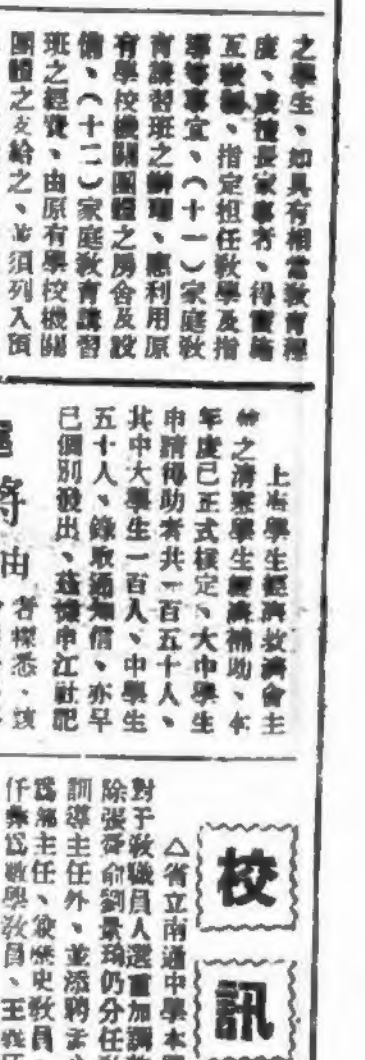 之學生、如具有相當教育程
度、或擅長家事者、得實施
互教制、指定担任教學及指
導等事宜、(十一)家庭教
育講習班之辦理、應利用原
有學校機關團體之房舍及設
備、(十二)家庭教育講習
班之經費、由原有學校機關
團體之支給之、並須列入預
上海學生經濟救濟會主
辦之清寒學生經濟補助、本
年度已正式核定、大中學生
申請得助者共一百五十人、
其中大學生一百人、中學生
五十人、錄取通知信、亦早
已個別發出、茲據申江社記
者探悉、該
將由
校訊
△省立南通中學本
對于教職員人選重加調
除張 俞劉景瑜仍分任
訓導主任外、並添聘
為 主任、 歷史教員、
仟無為數學教員、王